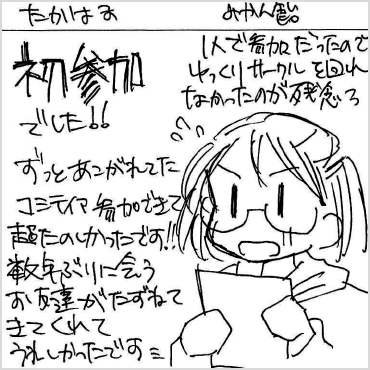 たかはる
みかん
初参加
でした!!
ずっとあこがれてた
コミティア参加できて
超たのしかったです!!
数年ぶりに会う
お友達がたずねて
きてくれて
うれしかったです
1人で参加だったので
ゆっくりサークルを回れ
なかったのが残念